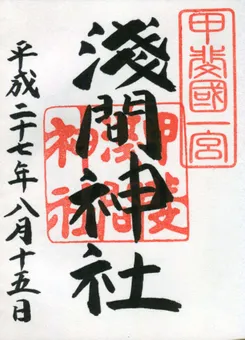 甲斐國一宮
淺間神社
甲斐
淺間
神社
平成二十七年八月十五日